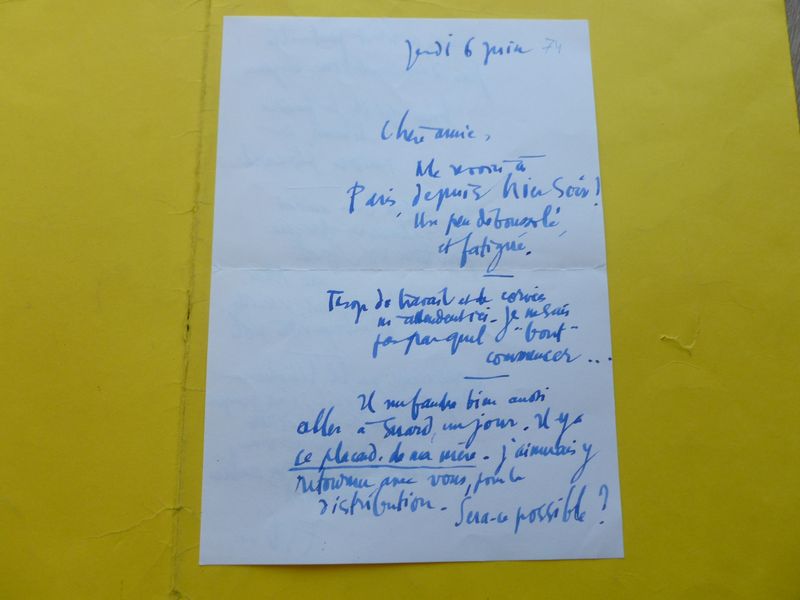 Jeudi 6 juin 74
Chère amie,
Me revoici à
Paris, depuis hier soir !
Un peu déboussolé,
et fatigué.
Trop de travail et de corvées
m'attendent ici. Je ne sais
pas par quel - bout -
commencer...
Il me faudra bien aussi
aller à un jour. Il y a
ce placard de ma mère. J'aimerais y
retourner avec vous, pour la
distribution. Sera-ce possible ?